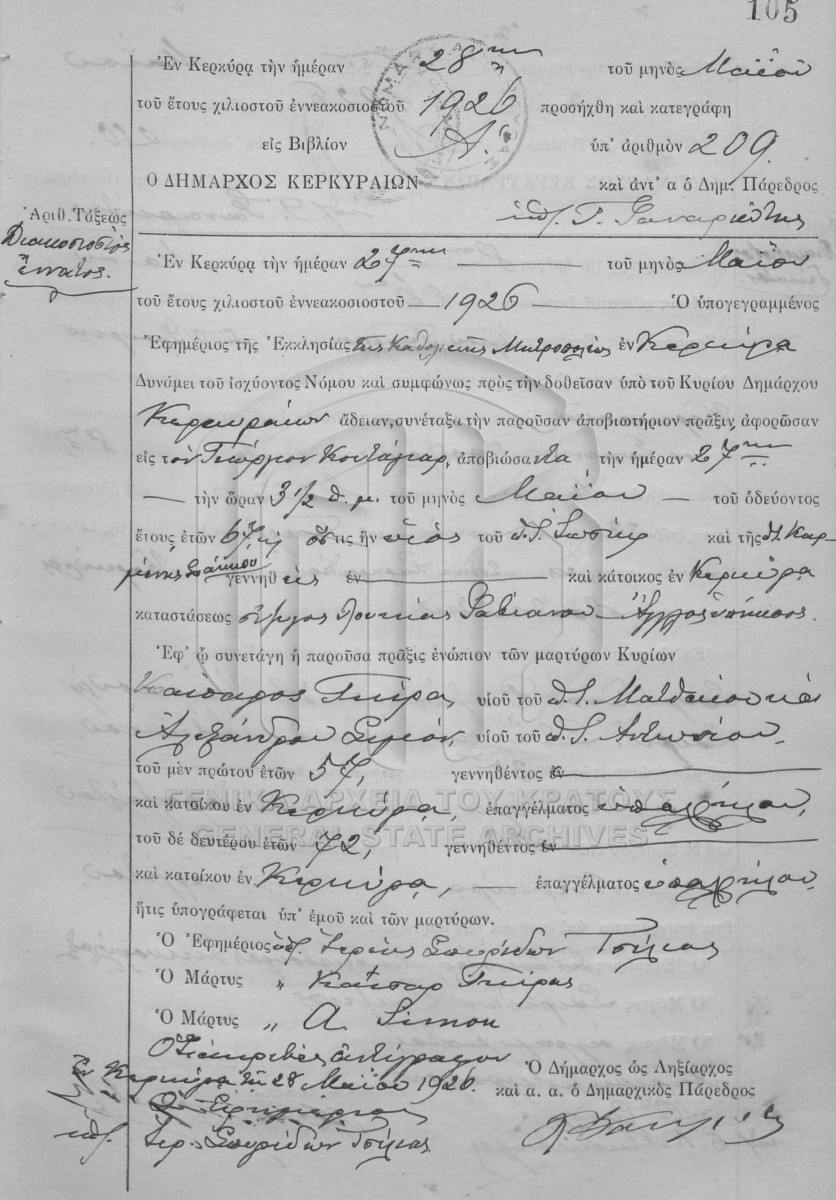 105
Ἐν Κερκύρᾳ τὴν ἡμέραν 28ην τοῦ μηνὸς Μαΐου
τοῦ ἔτους χιλιοστοῦ ἐννεακοσιοστοῦ 1926 προσήχθη καὶ κατεγράφη
εἰς Βιβλίον Α΄. ὑπ' ἀριθμὸν 209.
Ο ΔΗΜΑΡΧΟΣ ΚΕΡΚΥΡΑΙΩΝ καὶ ἀντ' α ὁ Δημ. Πάρεδρος
Ἀριθ. Τάξεως ὑπ. Γ.
Διακοσιοστὸς
ἔννατος.
Ἐν Κερκύρᾳ τὴν ἡμέραν 27ην τοῦ μηνὸς Μαΐου
τοῦ ἔτους χιλιοστοῦ ἐννεακοσιοστοῦ 1926 Ὁ ὑπογεγραμμένος
Ἐφημέριος τῆς Ἐκκλησίας τῆς Καθολικῆς Μητροπόλεως ἐν Κερκύρᾳ
Δυνάμει τοῦ ἰσχύοντος Νόμου καὶ συμφώνως πρὸς τὴν δοθεῖσαν ὑπὸ τοῦ Κυρίου Δημάρχου
Κερκυραίων ἄδειαν, συνέταξα τὴν παροῦσαν ἀποβιωτήριον πρᾶξιν, ἀφορῶσαν
εἰς τὸν Γεώργιον ἀποβιώσαντα τὴν ἡμέραν 27ην
τὴν ὥραν 3 1/2 π. μ. τοῦ μηνὸς Μαΐου τοῦ ὁδεύοντος
ἔτους ἐτῶν 67 ὅστις ἦν υἱὸς τοῦ π. Ἰωσὴφ καὶ τῆς Καρ-
μένης γεννηθεὶς ἐν καὶ κάτοικος ἐν Κερκύρᾳ
καταστάσεως σύζυγος Λουκίας Φαβιανοῦ Ἀγγλος ὑπήκοος.
Ἐφ' ᾧ συνετάγη ἡ παροῦσα πρᾶξις ἐνώπιον τῶν μαρτύρων Κυρίων
Καίσαρος υἱοῦ τοῦ Ματθαίου καὶ
Ἀλεξάνδρου Σιμὸν, υἱοῦ τοῦ Ἀντωνίου,
τοῦ μὲν πρώτου ἐτῶν 57, γεννηθέντος ἐν
καὶ κατοίκου ἐν Κερκύρᾳ, ἐπαγγέλματος ὑπαλλήλου,
τοῦ δὲ δευτέρου ἐτῶν 72, γεννηθέντος ἐν
καὶ κατοίκου ἐν Κερκύρᾳ, ἐπαγγέλματος ὑπαλλήλου,
ἥτις ὑπογράφεται ὑπ' ἐμοῦ καὶ τῶν μαρτύρων.
Ὁ Ἐφημέριος ὑπ. Ἱερεὺς Σπυρίδων
Ὁ Μάρτυς " Καίσαρ
Ὁ Μάρτυς " A. Simon
Ἀκριβὲς ἀντίγραφον
Ἐν Κερκύρᾳ τῇ 28 Μαΐου 1926
Ὁ Ἐφημέριος
ὑπ. Ἱερ. Σπυρίδων
Ὁ Δήμαρχος ὡς Ληξίαρχος
καὶ α. α. ὁ Δημαρχικὸς Πάρεδρος
ΓΕΝΙΚΑ ΑΡΧΕΙΑ ΤΟΥ ΚΡΑΤΟΥΣ
GENERAL STATE ARCHIVES